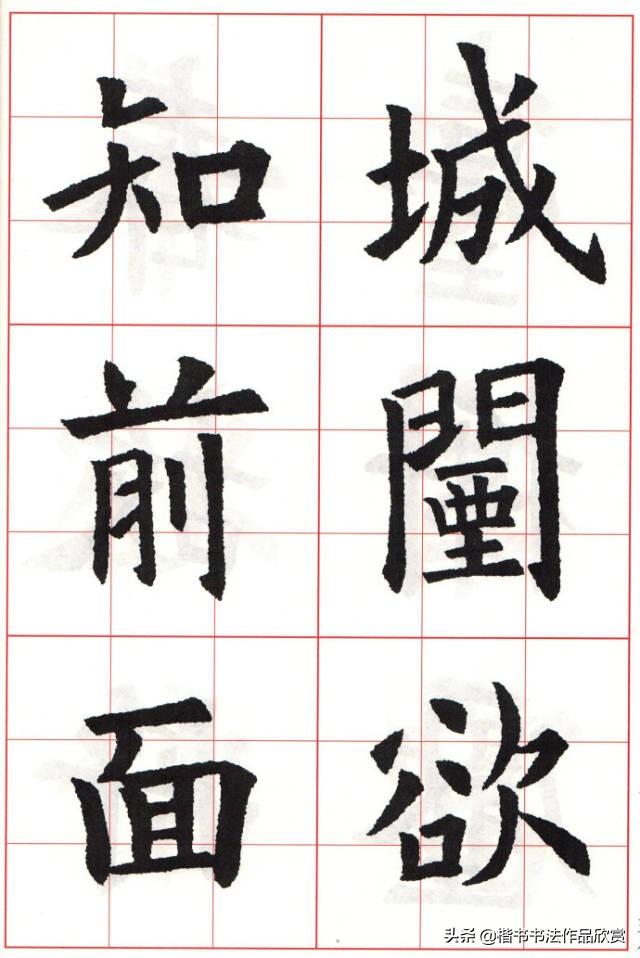 城闉欲
知前面
头条 @楷书书法作品欣赏